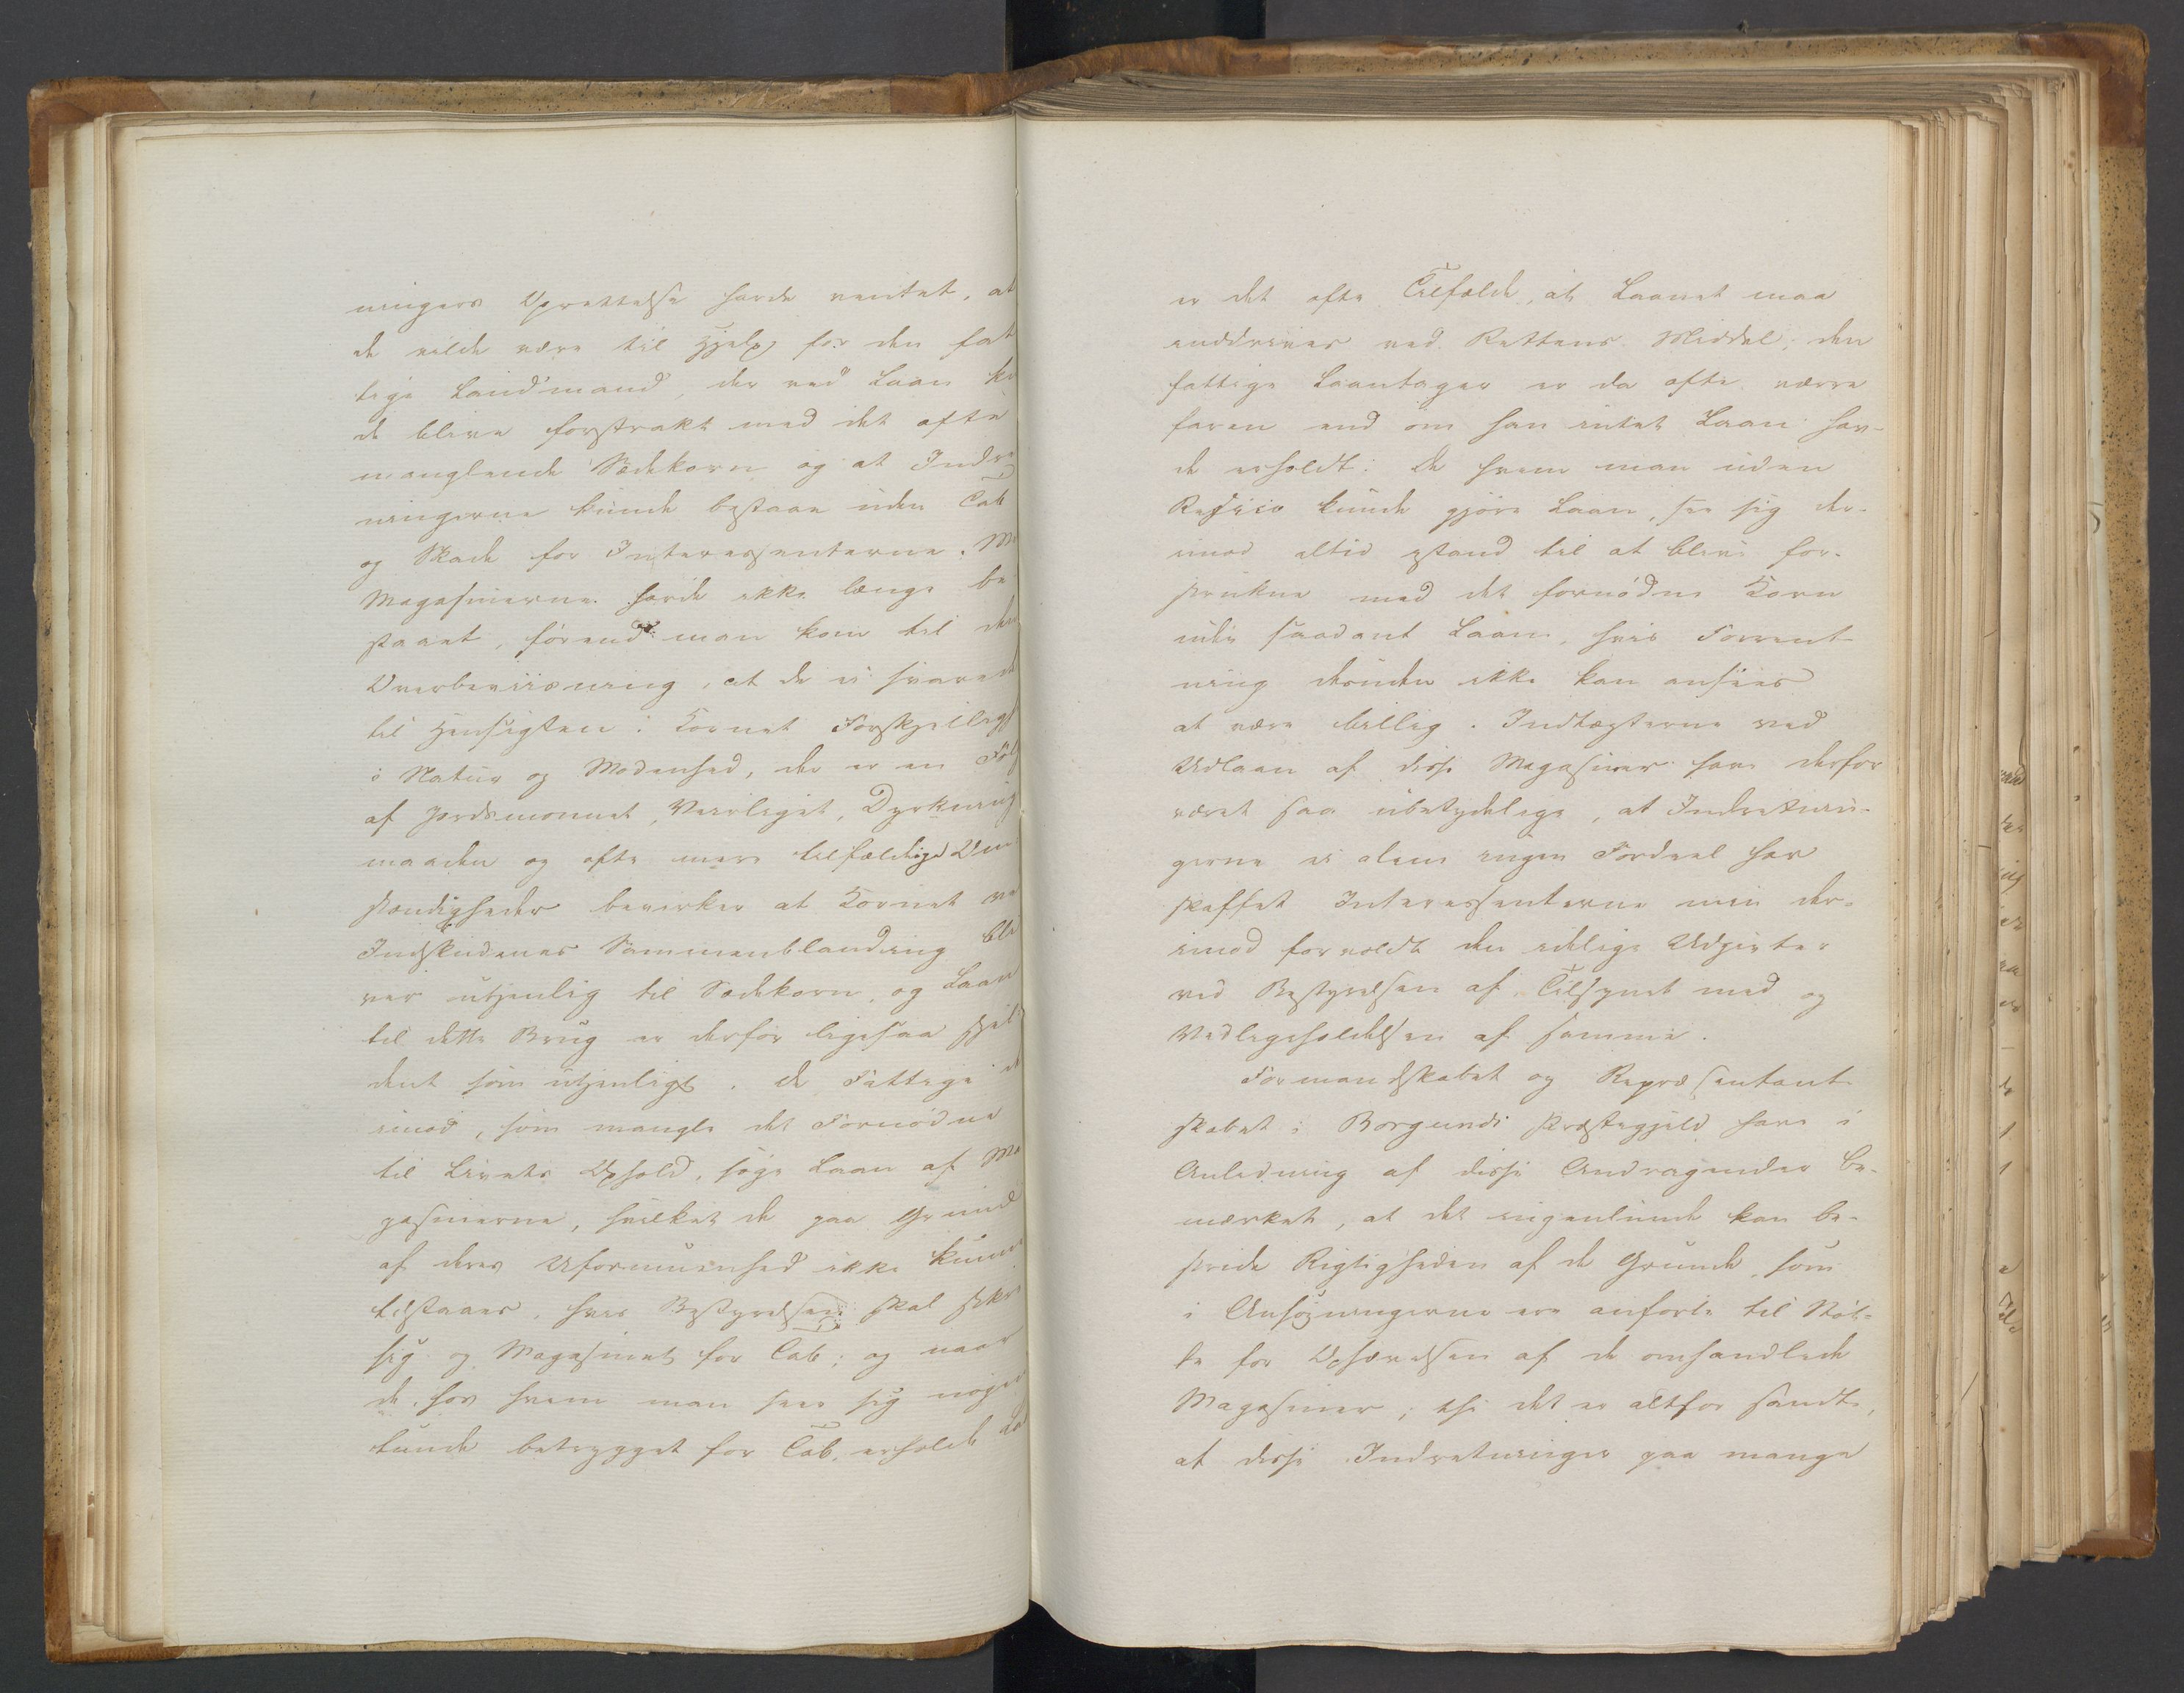 ningers Oprettelse havde ventet, at
de vilde være til Hjelp for den fat
tige Landmand, der ved Laan ku
de blive forstrakt med det ofte
manglende Sædekorn og at Indre
ningerne kunde bestaae uden Tab
og Skade for Interessenterne. M
Magasinerne havde ikke længe be
staaet, førend man kom til den
Overbeviisning, at de ei svared
til Hensigten: Kornets Forskjellig
i Natur og Modenhed, der er en Føl
af Jordsmonnet, Veirliget, Dyrkning
maaden og ofte mere tilfældige Om
stændigheder bevirker at Kornet ve
Indskudenes Sammenblanding bli
ver utjenlig til Sædekorn, og Laan
til dette Brug er derfor ligesaa sjel
dent som utjenligt. De Fattige d
imod, som mangle det Fornødne
til Livets Ophold, søge Laan af Ma
gasinerne, hvilket de paa Grund
af deres Uformuenhed ikke kunne
tilstaaes, hvis Bestyrelsen skal sikre
sig og Magasinet for Tab; og naar
de, hos hvem man seer sig nogen
lunde betrygget for Tab, erholde Laa
er det ofte Tilfælde, at Laanet maa
inddrives ved Rettens Middel; den
fattige Laantager er da ofte værre
faren end om han intet Laan hav-
de erholdt: De hvem man uden
Resiico kunde gjöre Laan, see sig der-
imod altid istand til at blive for-
synkne med det fornödne Korn
uden saadant Laan, hvis Forrent-
ning desuden ikke kan ansees
at være billig. Indtægterne ved
Udlaan af disse Magasiner have derfor
været saa ubetydelige, at Indretnin-
gerne ei alene ingen Fordeel har
skaffet Interessenterne men der-
imod forvoldt dem idelige Udgivter
ved Bestyrelsen af, Tilsynet med og
Vedligeholdelsen af samme.
Formandskabet og Repræsentant
skabet i Borgunds Præstegjeld have i
Anledning af disse Andragender be-
mærket, at det ingenlunde kan be-
stride Rigtigheden af de Grunde, som
i Ansøgningerne ere anförte til Støt-
te for Ophævelsen af de omhandlede
Magasiner; thi det er altfor sandt,
at disse Indretninger paa mange